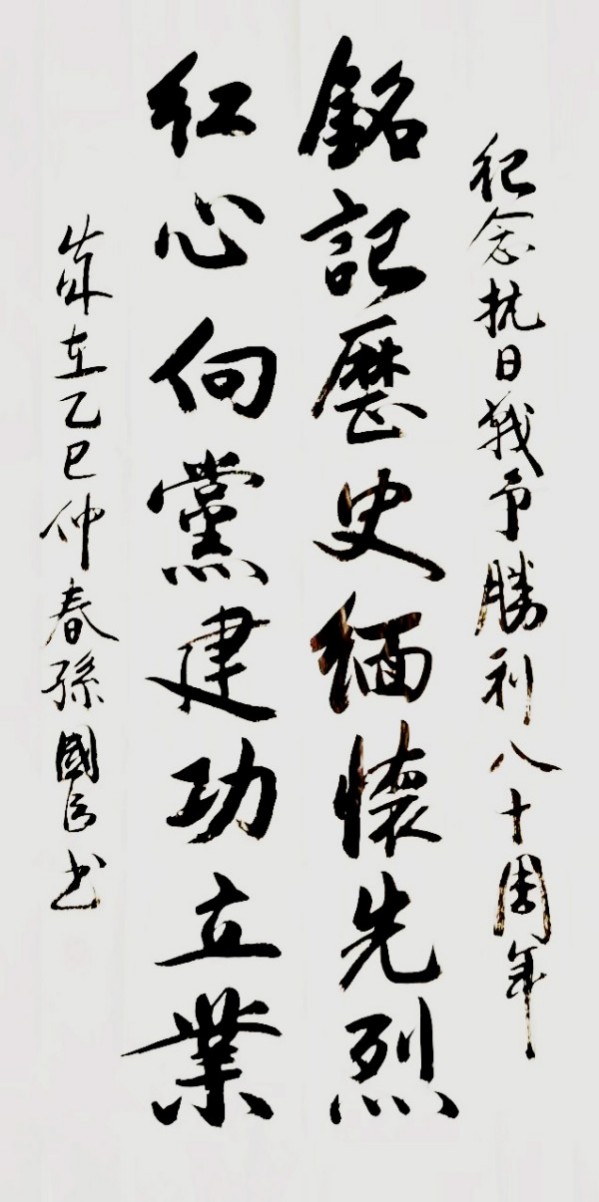 紀念抗日戰争勝利八十周年
銘記歷史缅懷先烈
红心向黨建功立業
歲在乙巳仲春孫國良书